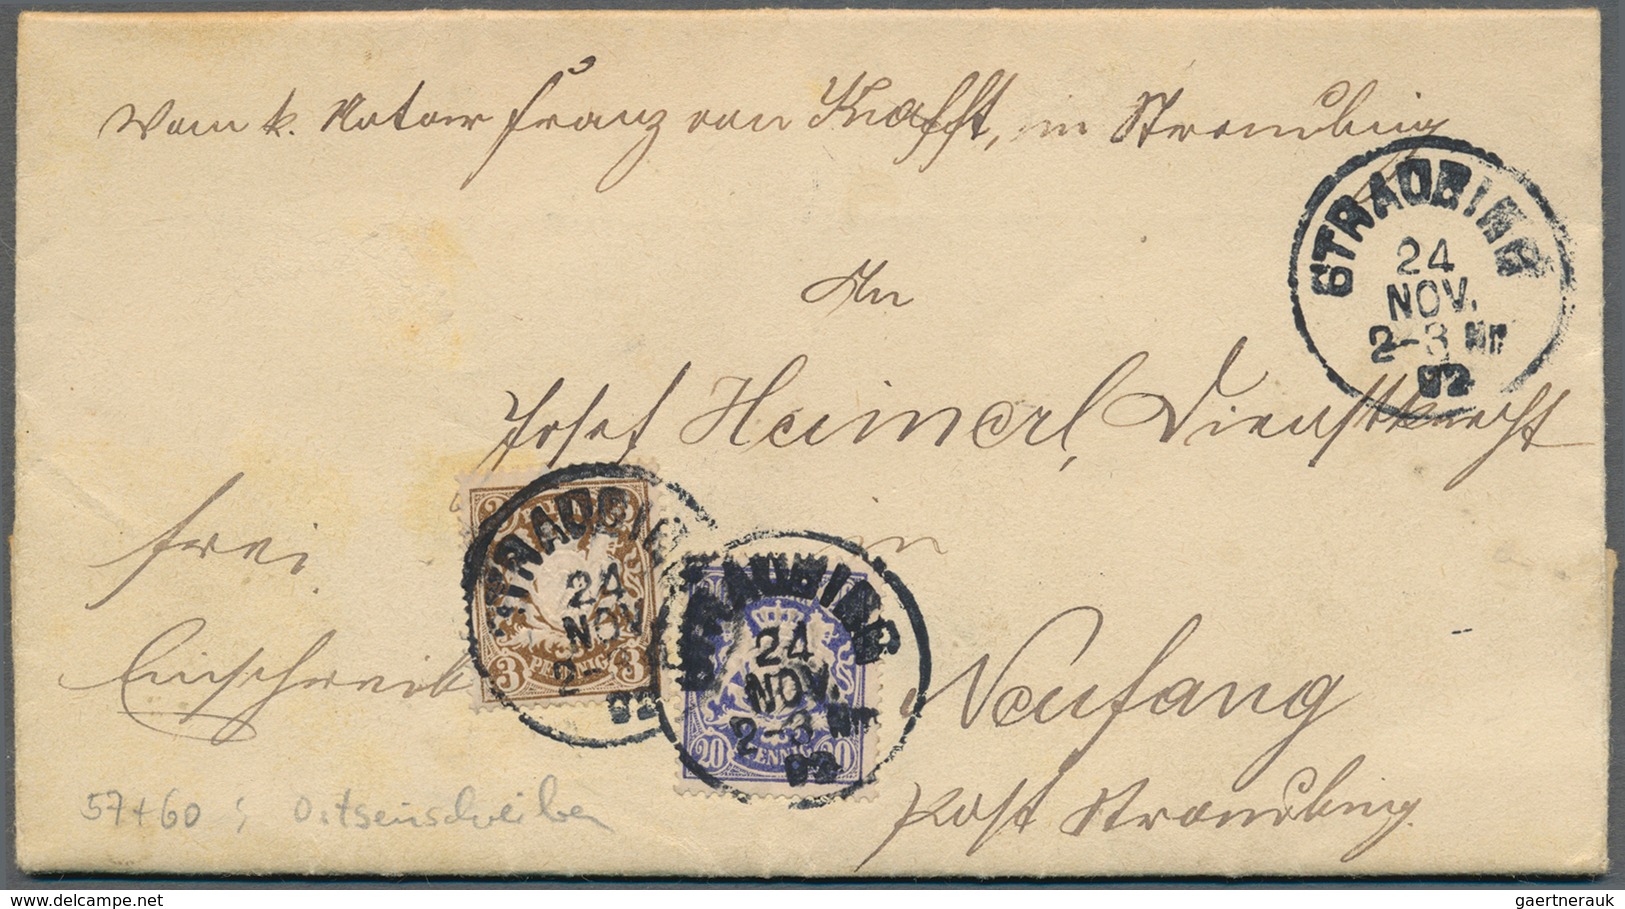 Vom k. Notar Franz von Krafft, in Straubing
STRAUBING
24
NOV.
2-3 Nm
92
An
Josef Heimerl, Dienstknecht
frei.
in
Einschreib
Neufang
Post Straubing.
STRAUBING
24
NOV.
2-3
92
3 3
PFENNIG
STRAUBING
24
NOV.
2-3 Nm
92
20 PFENNIG 20
57+60 ; Ortseinschreiben
gaertnerauk